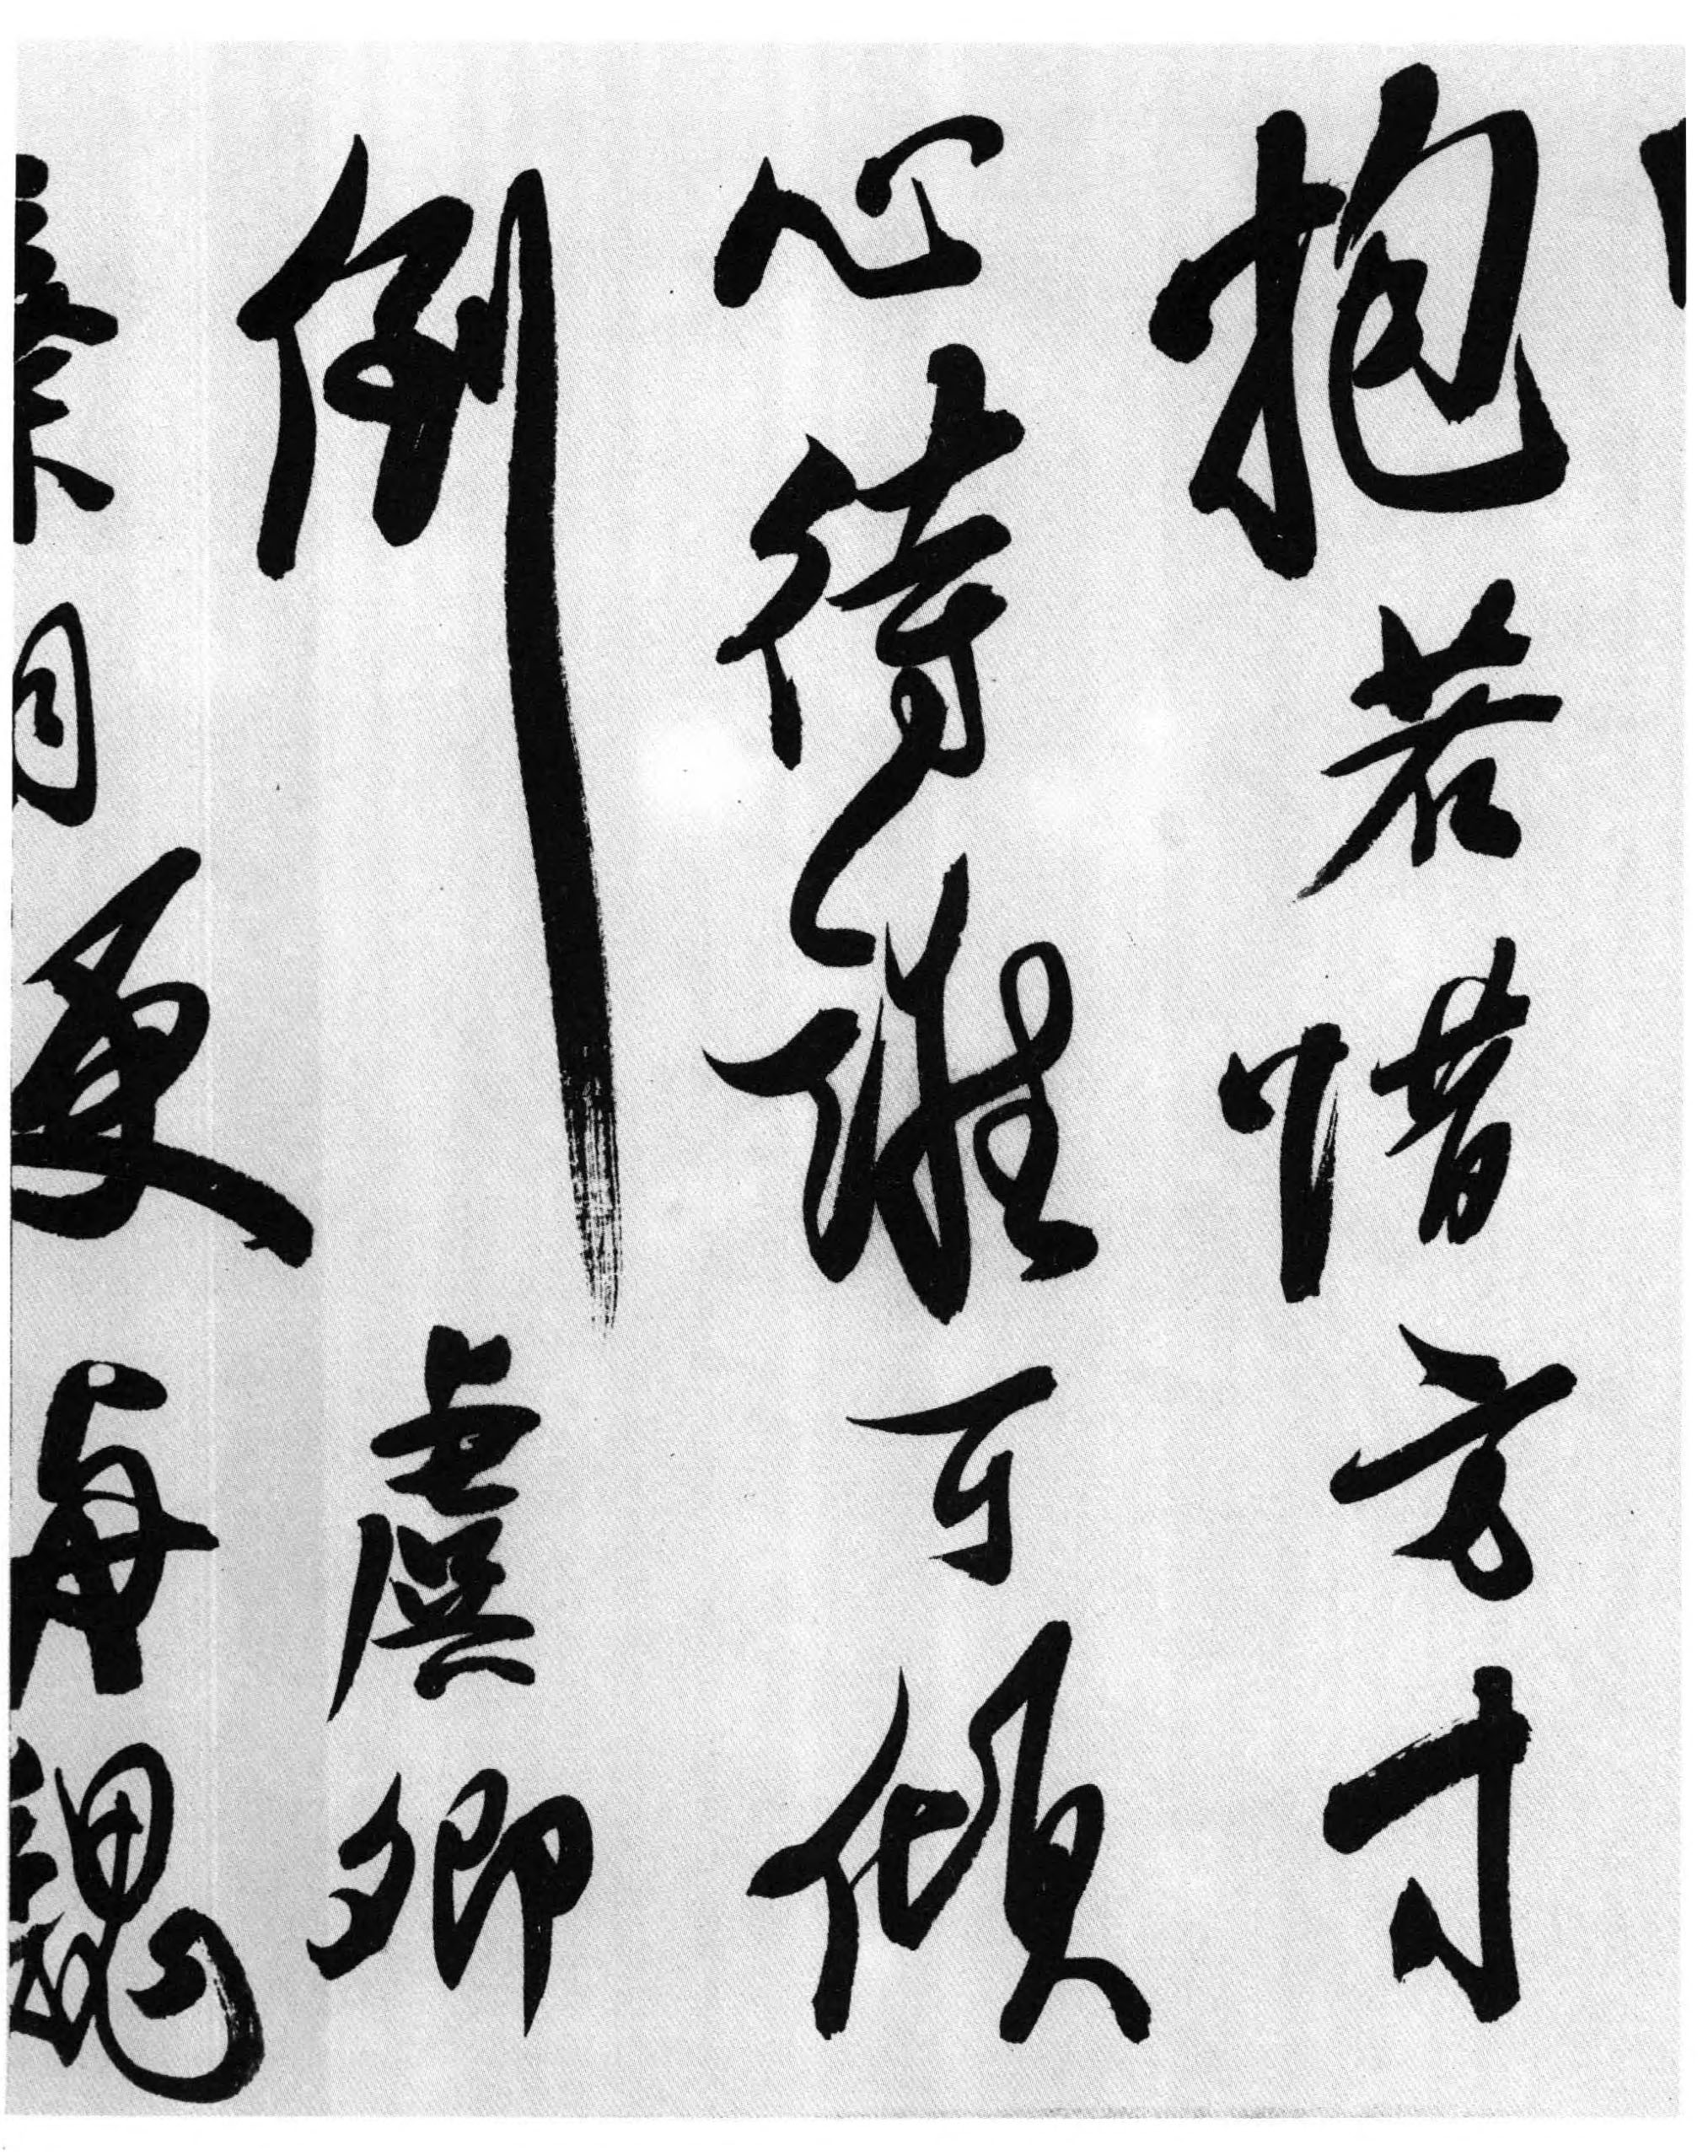 抱若惜方寸
心待誰可傾
倒虞卿
棄相便與魏